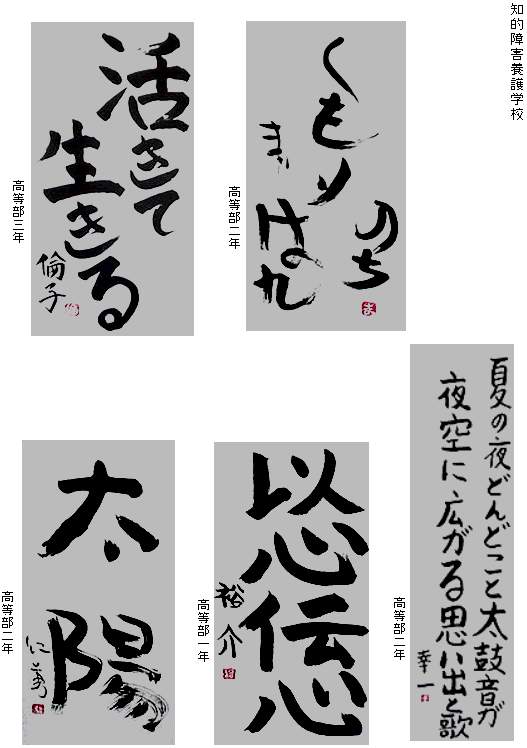 知的障害養護学校
くもり
のち
はれ
高等部二年
活きて
生きる
倫子
高等部三年
夏の夜どんどこと太鼓音が
夜空に広がる思い出と歌
幸一
高等部二年
以心伝心
裕介
高等部一年
太陽
高等部二年